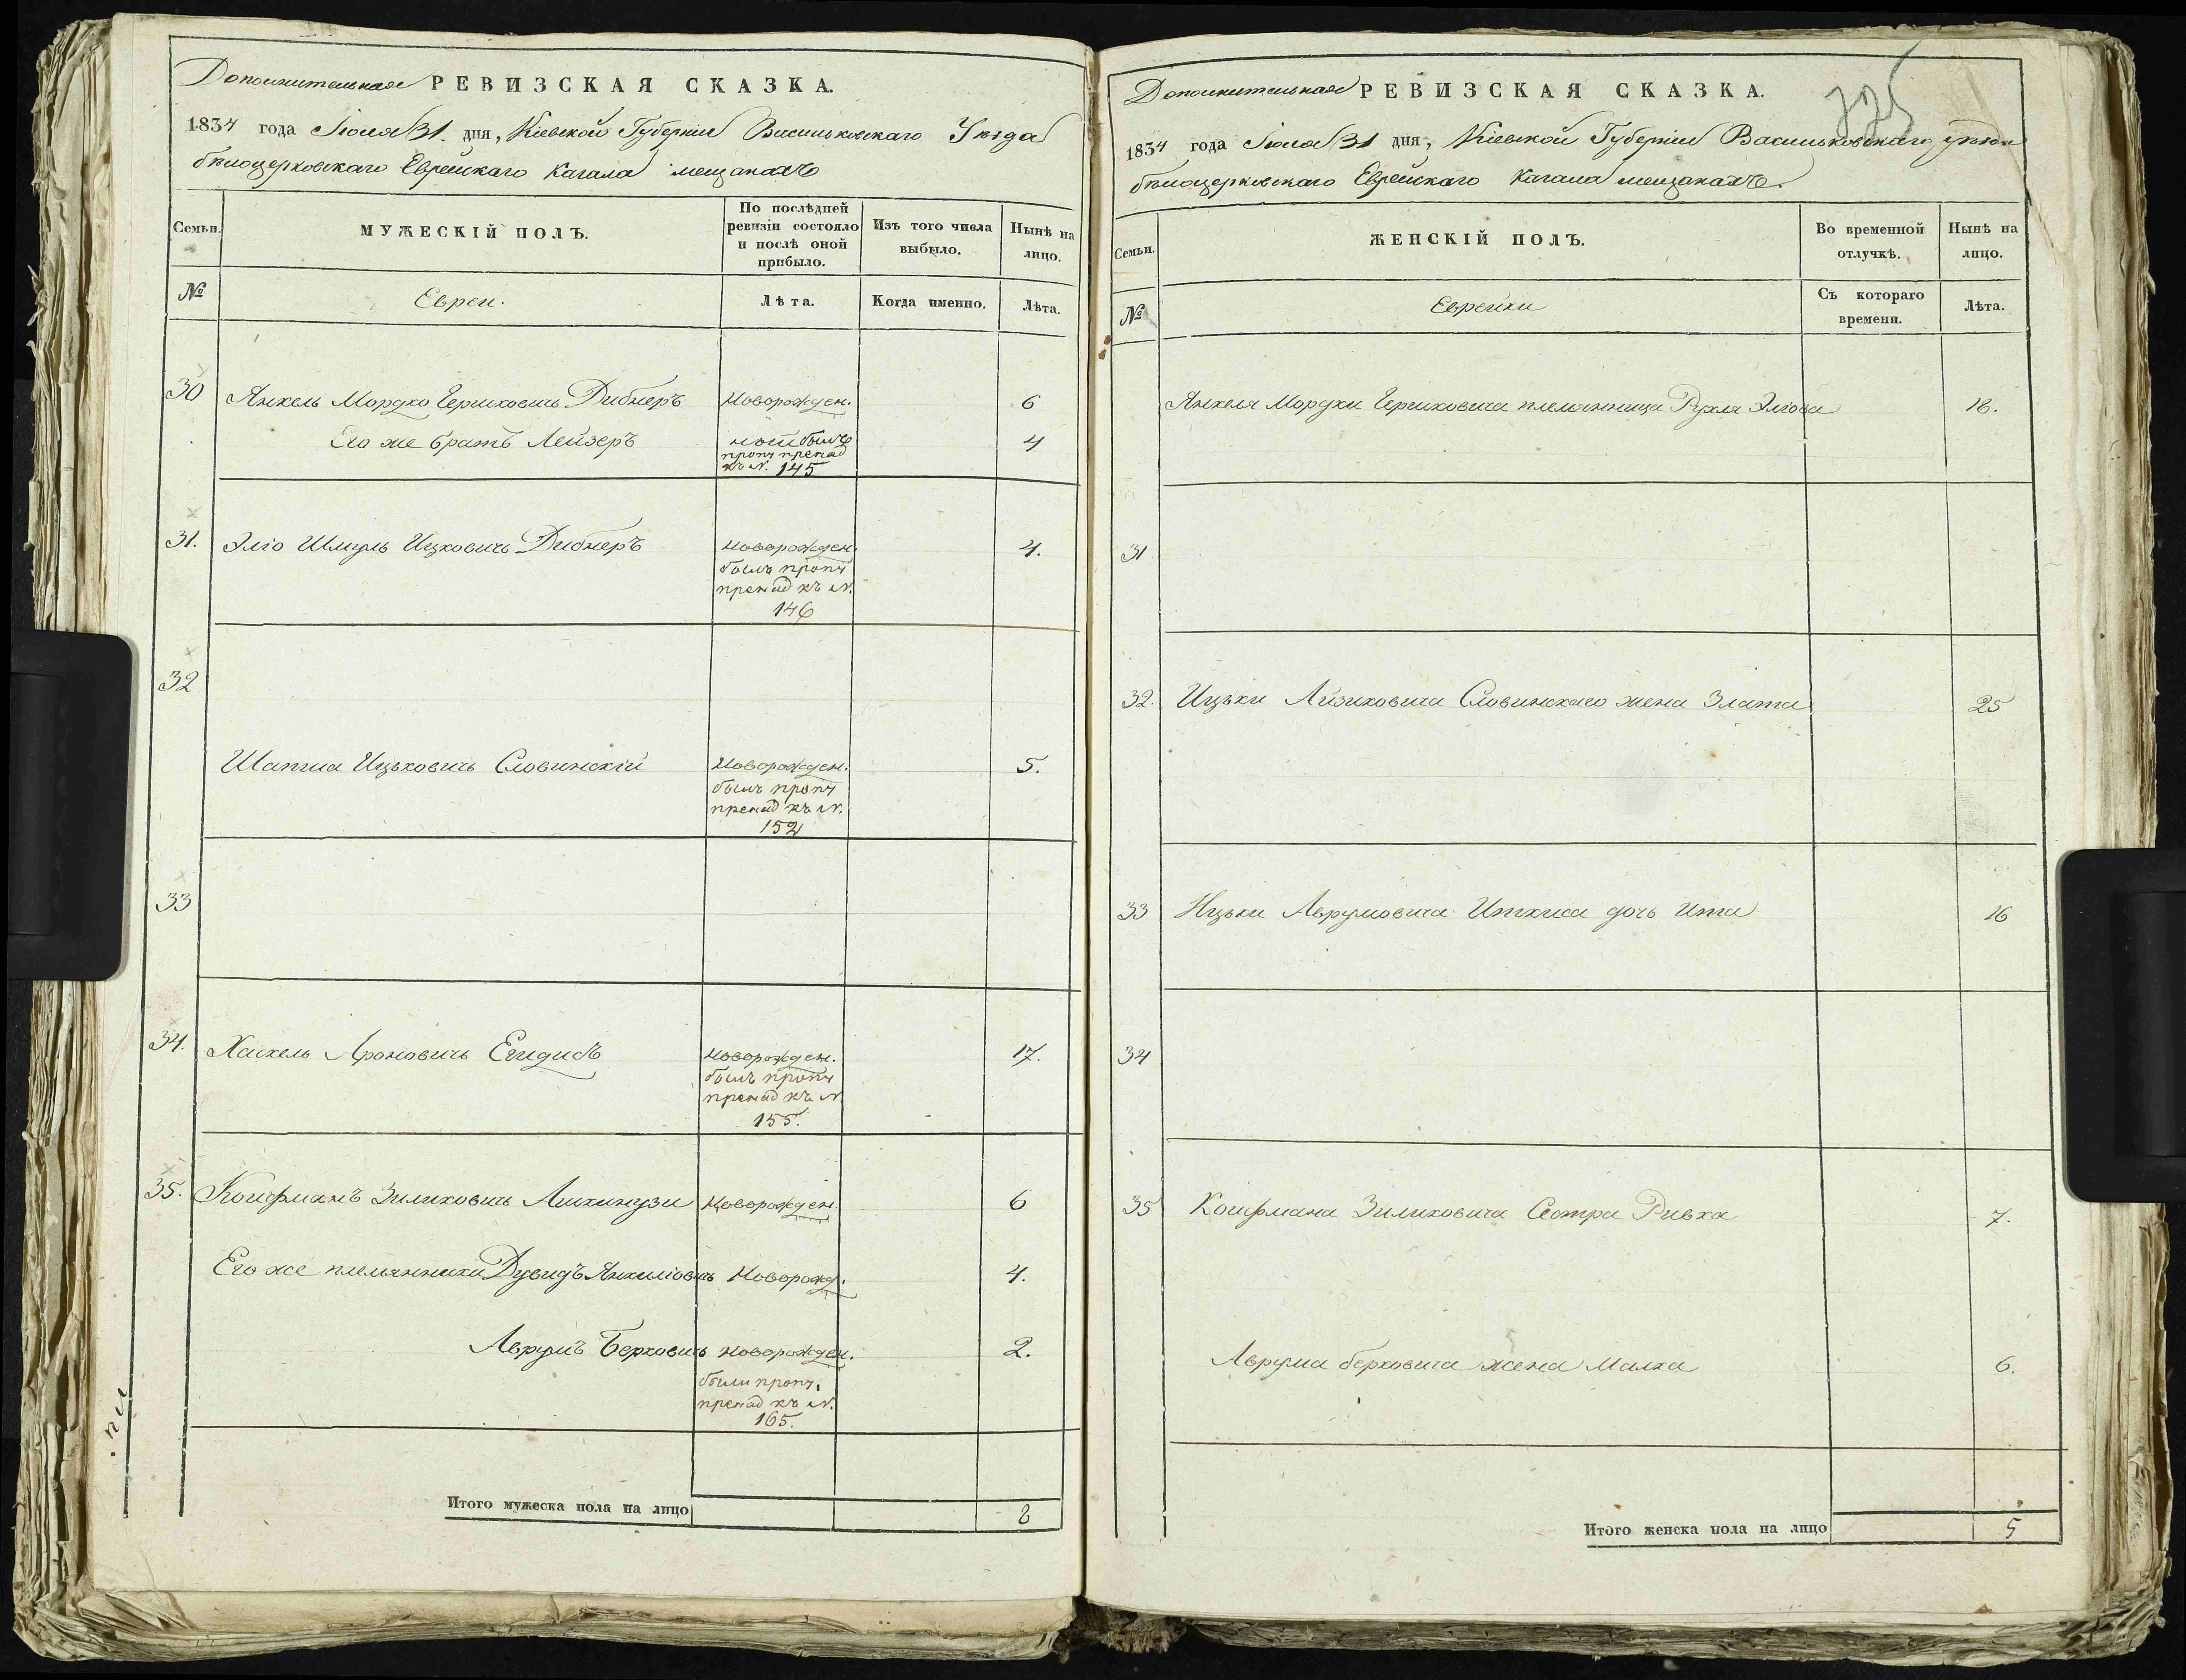 Дополнительная РЕВИЗСКАЯ СКАЗКА.
1834 года Іюля 31 дня, Кіевской Губерніи Васильковскаго Уѣзда
бѣлоцерковскаго Еврейскаго Кагала мещанахъ
Семьи.
МУЖЕСКІЙ ПОЛЪ.
По послѣдней
ревизіи состояло
и послѣ оной
прибыло.
Изъ того числа
выбыло.
Нынѣ на
лицо.
№
Евреи.
Лѣта.
Когда именно.
Лѣта.
30 Янкель Мордко Гершковичъ Дибнеръ Новорожден. 6
Его же братъ Лейзеръ 4
былъ
проп. пренад
къ N. 145
31. Эліо Шмуль Ицковичъ Дибнеръ Новорожден. 4.
былъ проп.
пренад къ N.
146
32
Шапша Ицьковичъ Словинскій Новорожден. 5.
былъ проп.
пренад къ N.
152
33
34. Хаскель Ароновичъ Егидисъ Новорожден. 17.
былъ проп.
пренад къ N
155.
35. Койфманъ Зилиховичъ Ашкинузи Новорожден. 6
Его же племянники Дувидъ Янкиліовичъ Новорожд. 4.
Аврумъ Берковичъ новорожден. 2.
были проп.
пренад къ N.
165.
Итого мужеска пола на лицо 8
Дополнительная РЕВИЗСКАЯ СКАЗКА.
1834 года Іюля 31 дня, Кіевской Губерніи Васильковскаго уѣзда
бѣлоцерковскаго Еврейскаго Кагала мещанахъ.
Семьи.
ЖЕНСКІЙ ПОЛЪ.
Во временной
отлучкѣ.
Нынѣ на
лицо.
№
Еврейки
Съ котораго
времени.
Лѣта.
Янкеля Мордки Гершковича племянница Рухля Эліова 18.
31
32. Ицьки Айзиковича Словинскаго жена Злата 25
33 Ицьки Аврумовича Иткиса дочь Ита 16
34
35 Койфмана Зилиховича Сестра Ривка 7.
Аврума берковича жена Малка 6.
Итого женска пола на лицо 5